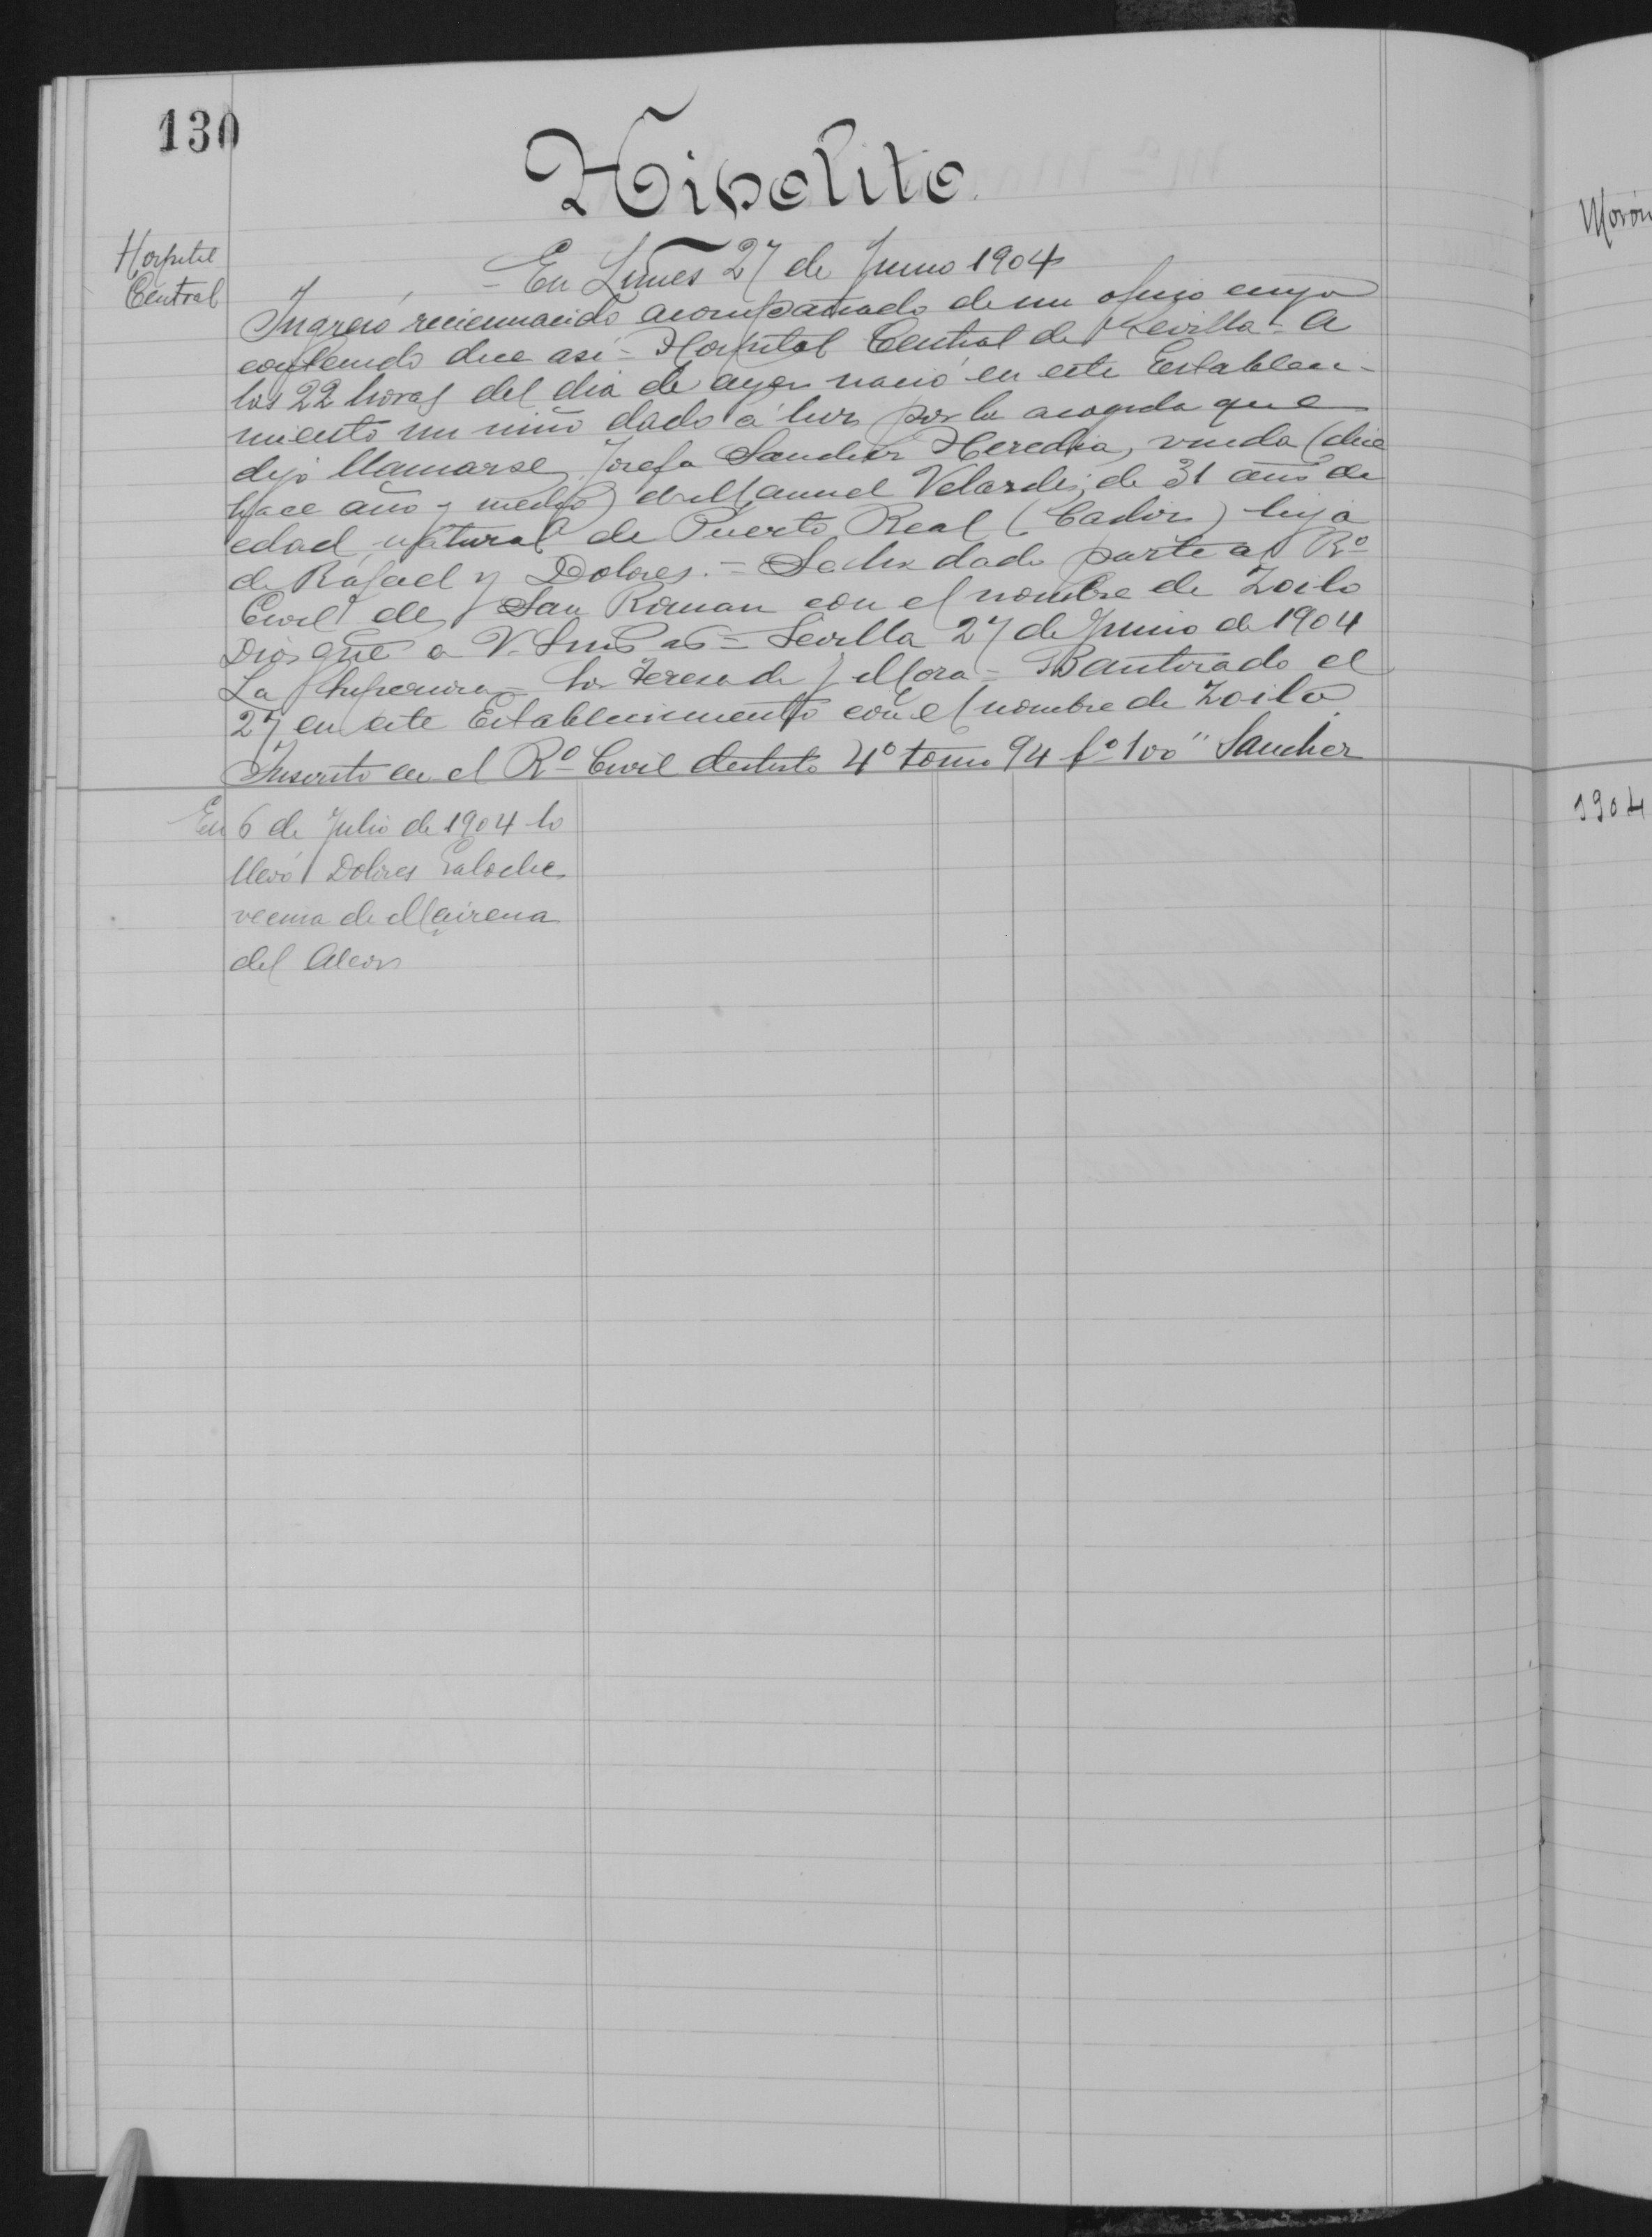 130
Hipolito
Hospital
Central
En Lunes 27 de Junio 1904
Ingresó reciennacido acompañado de un oficio cuyo
contenido dice asi = Hospital Central de Sevilla = A
las 22 horas del dia de ayer nació en este Estableci-
miento un niño dado á luz por la acogida que
dijo llamarse Josefa Sanchez Heredia, viuda (dice
hace año y medio) de Manuel Velarde, de 31 años de
edad natural de Puerto Real (Cadiz) hija
de Rafael y Dolores. = Se ha dado parte al Rº
Civil de San Roman con el nombre de Zoilo
Dios gue a V. = Sevilla 27 de Junio de 1904
La Superiora = Sor Teresa de Mora = Bautizado el
27 en este Establecimiento con el nombre de Zoilo.
Inscrito en el Rº Civil distrito 4º tomo 94 fº 100 " Sanchez
En 6 de Julio de 1904 lo
llevó Dolores Galoche
vecina de Mairena
del Alcor
Morón
1904